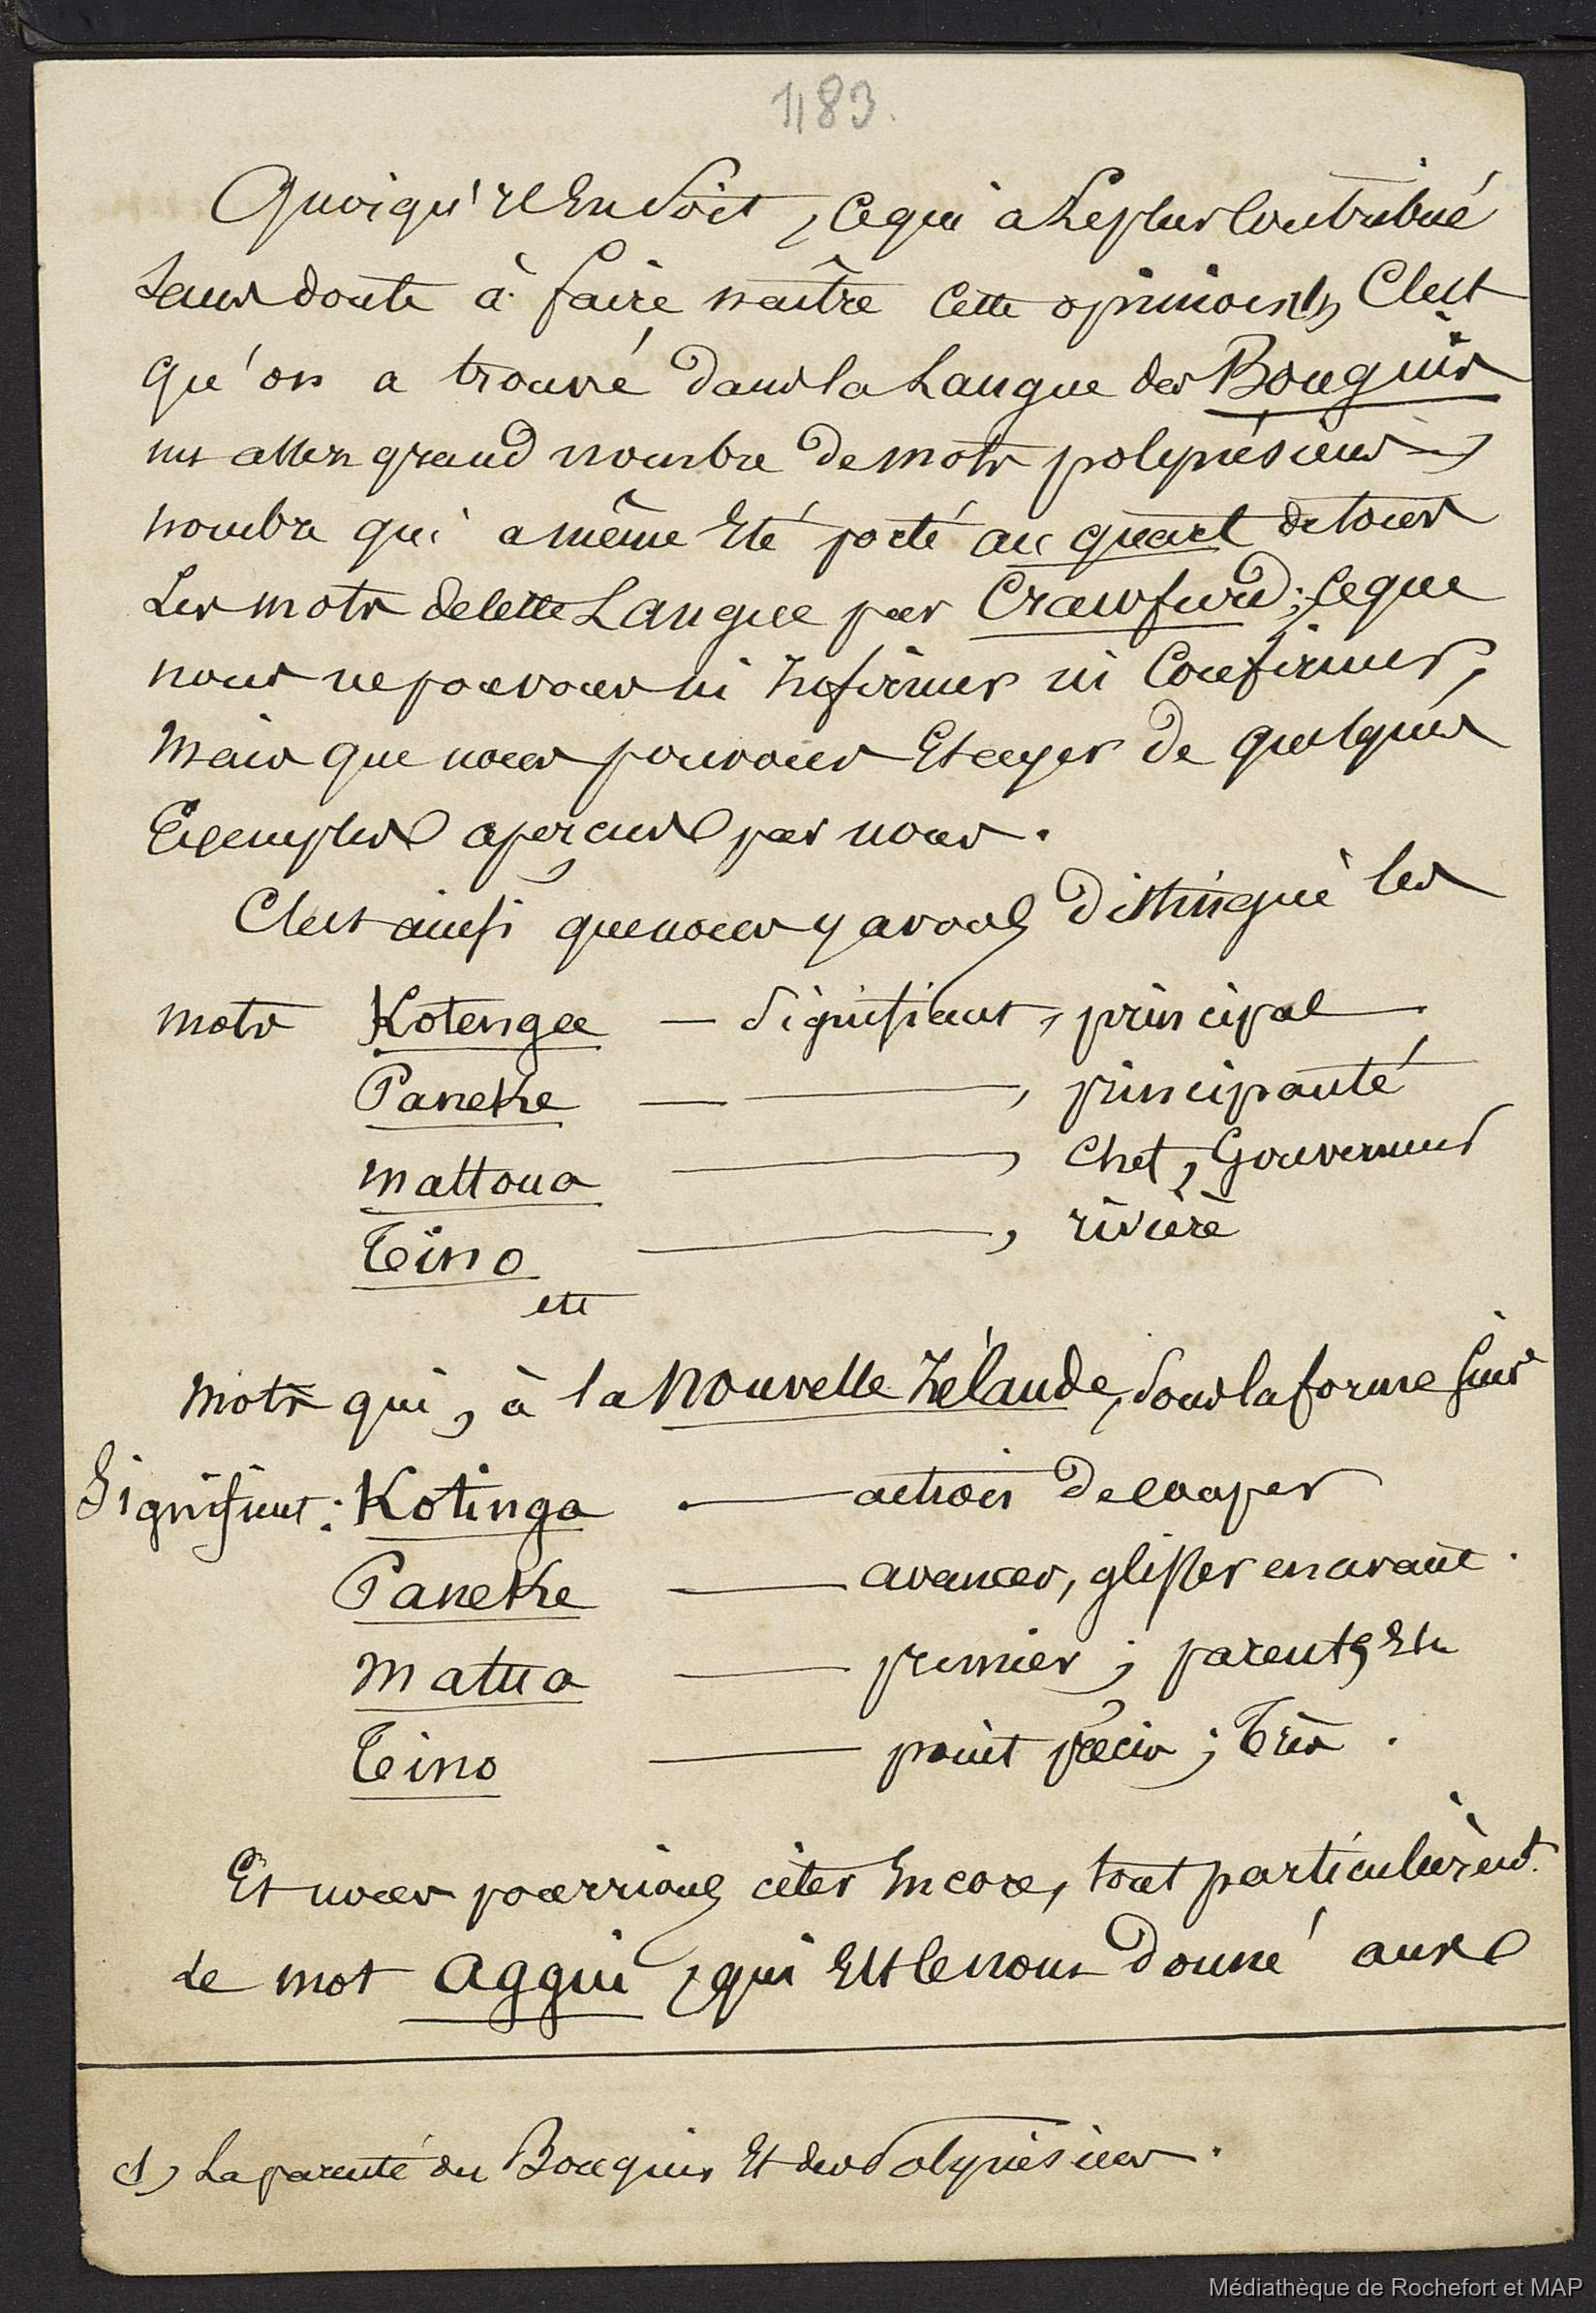 1183.
Quoiqu'il En Soit, Ce qui a Le plus Contribué
Sans doute à faire naître Cette opinion (1), C'est
qu'on a trouvé dans la Langue des Bouguis
un assez grand nombre de mots polynésiens,
nombre qui a même Eté porté au quart de tous
Les mots de cette Langue par Crawfurd; Ce que
nous ne pouvons ni Infirmer ni Confirmer,
Mais que nous pouvons Etayer de quelques
Exemples aperçus par nous.
C'est ainsi que nous y avons distingué les
mots Kotenga — Signifiant, principal
Paneke — —, principauté
Mattoua —, Chef, Gouverneur
Tino —, rivière
etc
Mots qui, à la Nouvelle Zélande, Sous la forme
Signifient: Kotinga — action de couper
Paneke — avancer, glisser en avant.
Matua — premier; parents, Etc
Tino — point précis; très.
Et nous pourrions citer Encore, tout particulièremt.
Le mot Aggui, qui Est le nom donné aux
(1) La parenté des Bouguis Et des Polynésiens.
Médiathèque de Rochefort et MAP